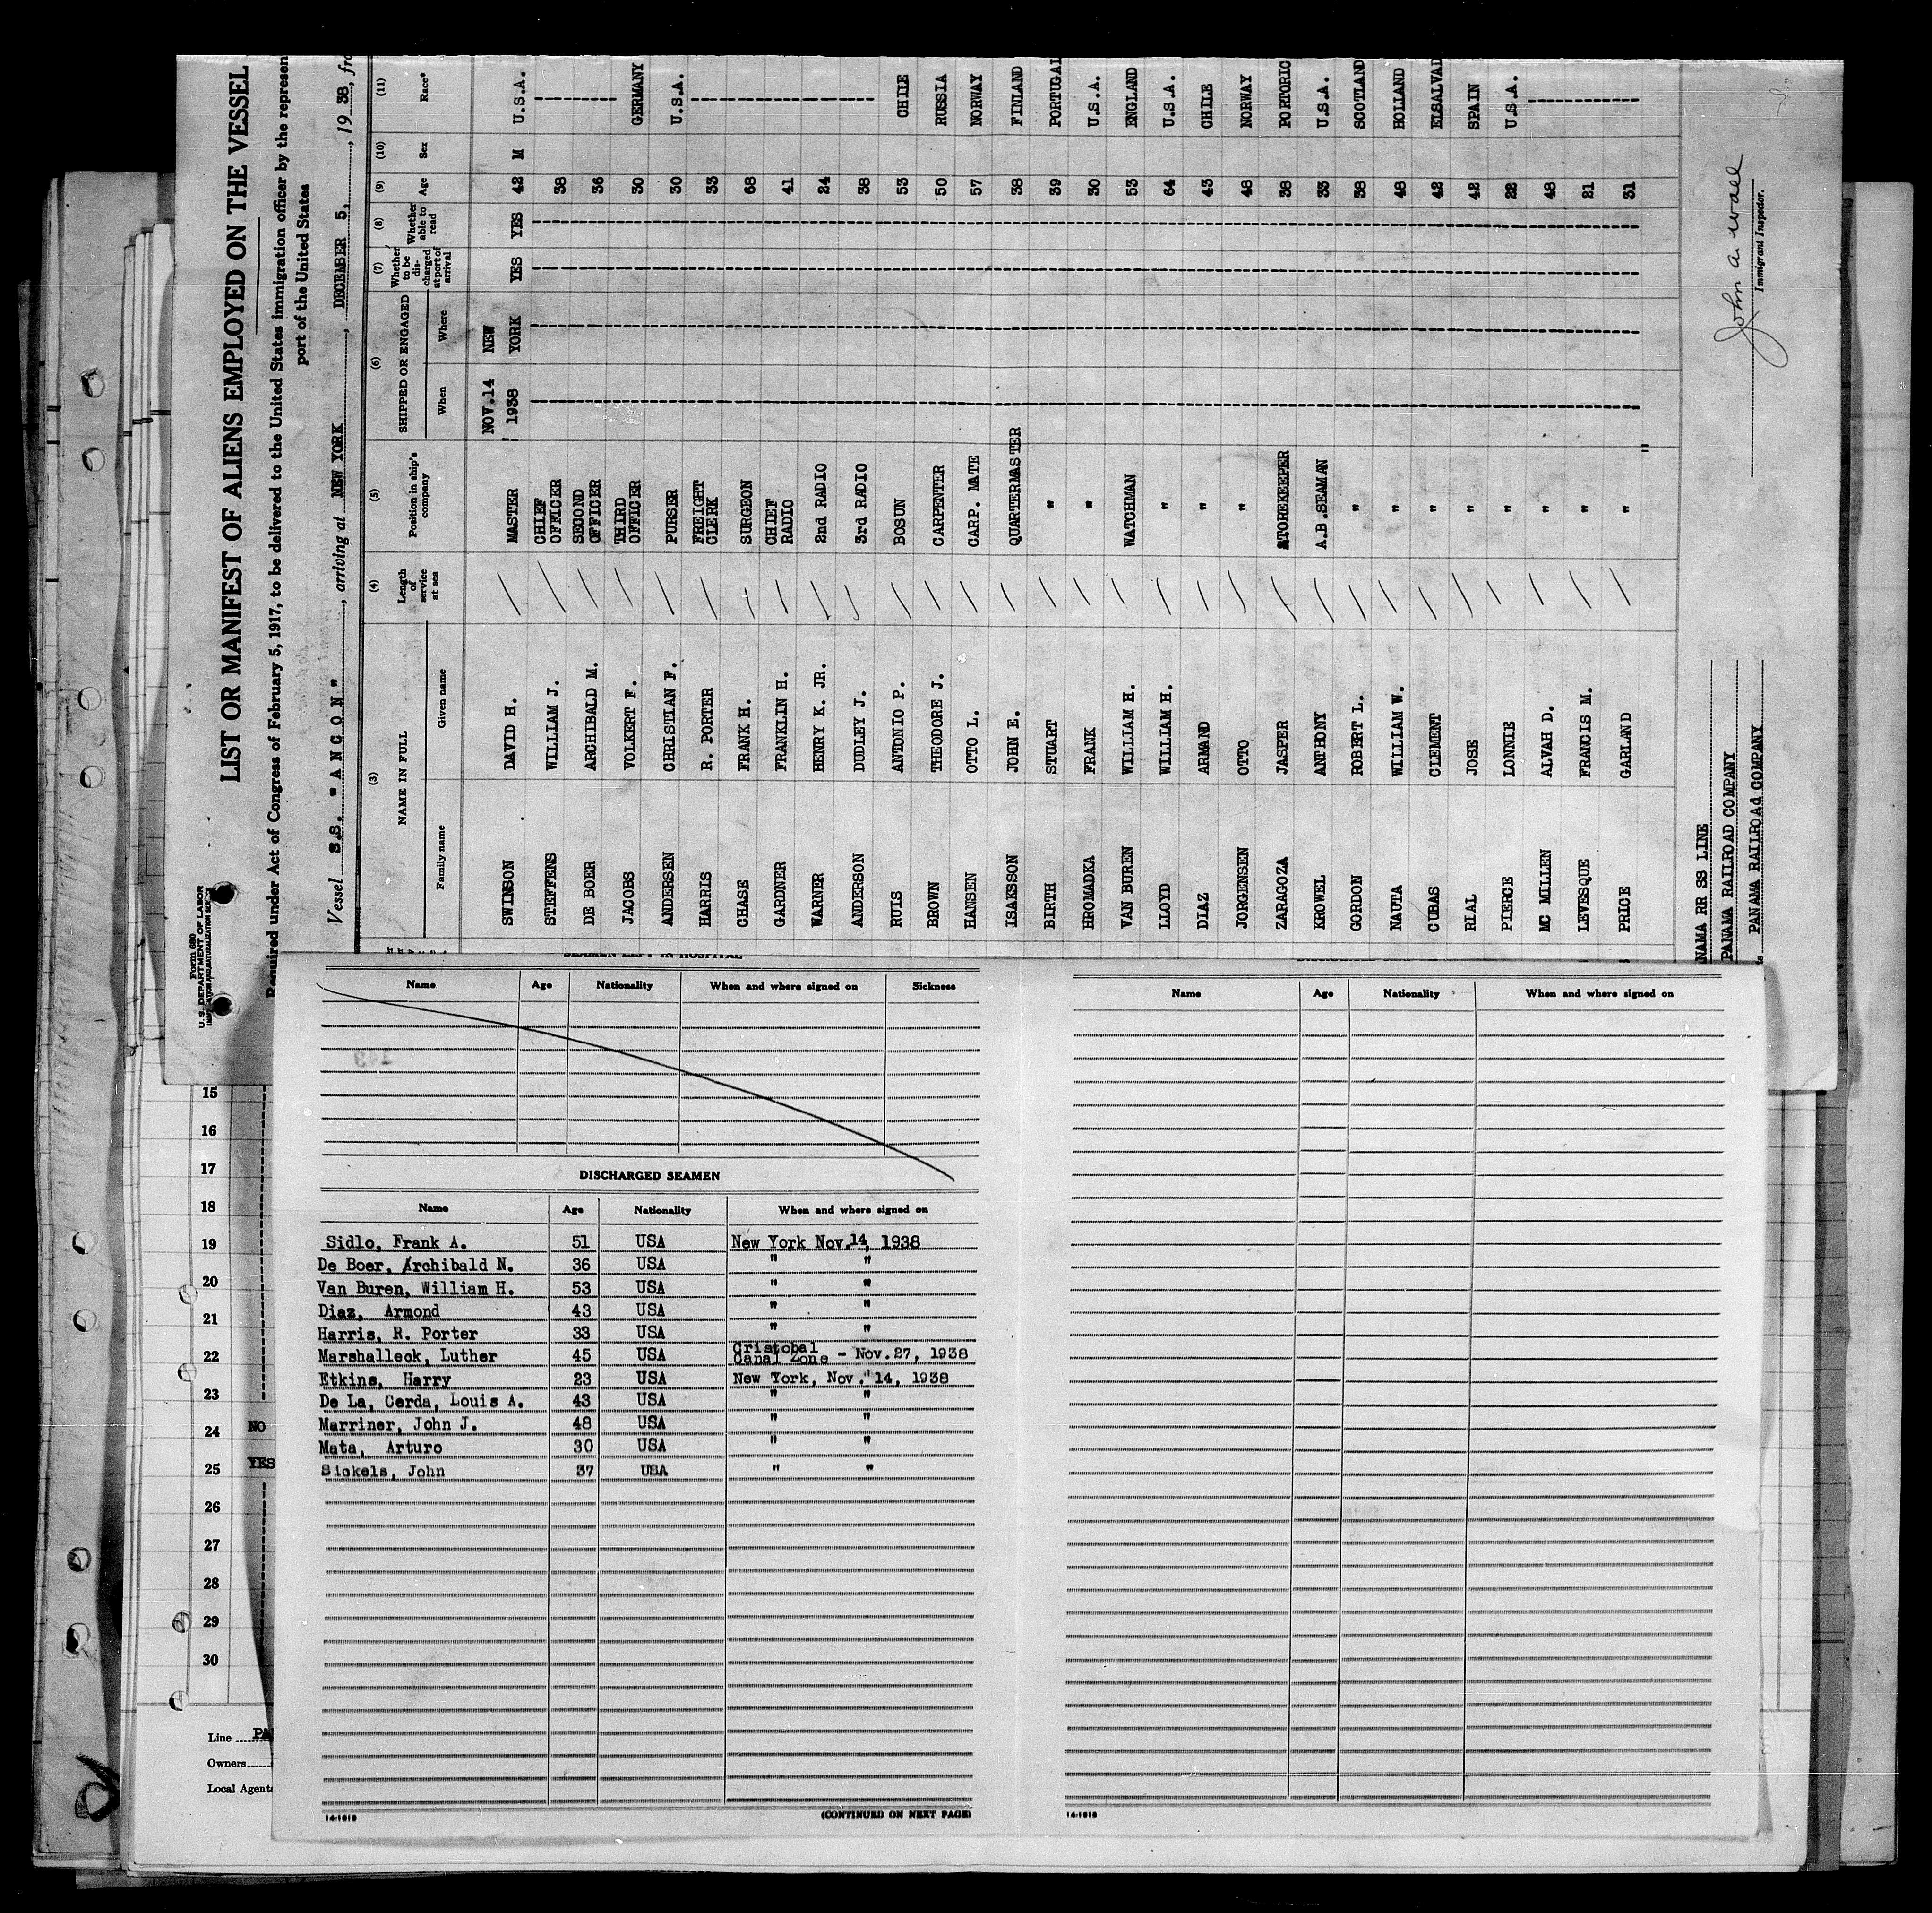 Form 680
U. S. DEPARTMENT OF LABOR
LIST OR MANIFEST OF ALIENS EMPLOYED ON THE VESSEL
Required under Act of Congress of February 5, 1917, to be delivered to the United States immigration officer by the represen
port of the United States
Vessel S.S. "ANCON", arriving at NEW YORK, DECEMBER 5, 1938, fro
(3) (4) (5) (6) (7) (8) (9) (10) (11)
NAME IN FULL Length of service at sea Position in ship's company SHIPPED OR ENGAGED Whether to be discharged at port of arrival Whether able to read Age Sex Race*
Family name Given name When Where
SWINSON DAVID H. MASTER NOV.14 1938 NEW YORK YES YES 42 M U.S.A.
STEFFENS WILLIAM J. CHIEF OFFICER 38
DE BOER ARCHIBALD M. SECOND OFFICER 36
JACOBS VOLKERT F. THIRD OFFICER 30 GERMANY
ANDERSEN CHRISTIAN F. PURSER 30 U.S.A.
HARRIS R. PORTER FREIGHT CLERK 33
CHASE FRANK H. SURGEON 68
GARDNER FRANKLIN H. CHIEF RADIO 41
WARNER HENRY K. JR. 2nd RADIO 24
ANDERSON DUDLEY J. 3rd RADIO 38
RUIS ANTONIO P. BOSUN 53 CHILE
BROWN THEODORE J. CARPENTER 50 RUSSIA
HANSEN OTTO L. CARP. MATE 57 NORWAY
ISAKSSON JOHN E. QUARTERMASTER 38 FINLAND
BIRTH STUART " 39 PORTUGAL
HROMADKA FRANK " 30 U.S.A.
VAN BUREN WILLIAM H. WATCHMAN 53 ENGLAND
LLOYD WILLIAM H. " 64 U.S.A.
DIAZ ARMAND " 43 CHILE
JORGENSEN OTTO " 48 NORWAY
ZARAGOZA JASPER STOREKEEPER 38 PORTORIC
KROWEL ANTHONY A.B.SEAMAN 33 U.S.A.
GORDON ROBERT L. " 38 SCOTLAND
NAUTA WILLIAM W. " 48 HOLLAND
CUBAS CLEMENT " 42 ELSALVAD
RIAL JOSE " 42 SPAIN
PIERCE LONNIE " 22 U.S.A.
MC MILLEN ALVAH D. " 48
LEVESQUE FRANCIS M. " 21
PRICE GARLAND " 31
NAMA RR SS LINE
PANAMA RAILROAD COMPANY
PANAMA RAILROAd COMPANY
John A Wall
Immigrant Inspector.
SEAMEN LEFT IN HOSPITAL
Name Age Nationality When and where signed on Sickness
DISCHARGED SEAMEN
Name Age Nationality When and where signed on
Sidlo, Frank A. 51 USA New York Nov.14, 1938
De Boer, Archibald N. 36 USA " "
Van Buren, William H. 53 USA " "
Diaz, Armond 43 USA " "
Harris, R. Porter 33 USA " "
Marshalleck, Luther 45 USA Cristobal Canal Zone - Nov.27, 1938
Etkins, Harry 23 USA New York, Nov. 14, 1938
De La, Cerda, Louis A. 43 USA " "
Marriner, John J. 48 USA " "
Mata, Arturo 30 USA " "
Sickels, John 37 USA " "
14-1618
(CONTINUED ON NEXT PAGE)
Name Age Nationality When and where signed on
14-1618
15
16
17
18
19
20
21
22
23
24 NO
25 YES
26
27
28
29
30
Line PA
Owners
Local Agents